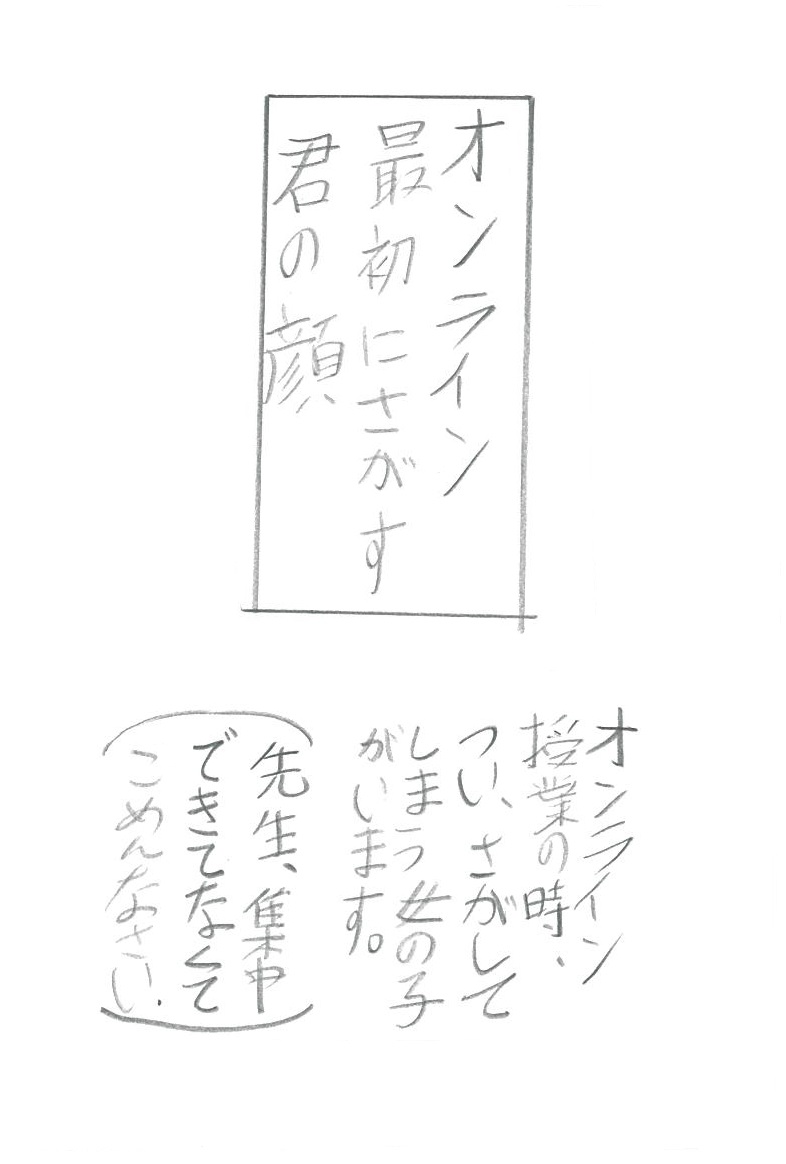 オンライン
最初にさがす
君の顔
オンライン
授業の時、
つい、さがして
しまう女の子
がいます。
(先生、集中
できてなくて
ごめんなさい.)